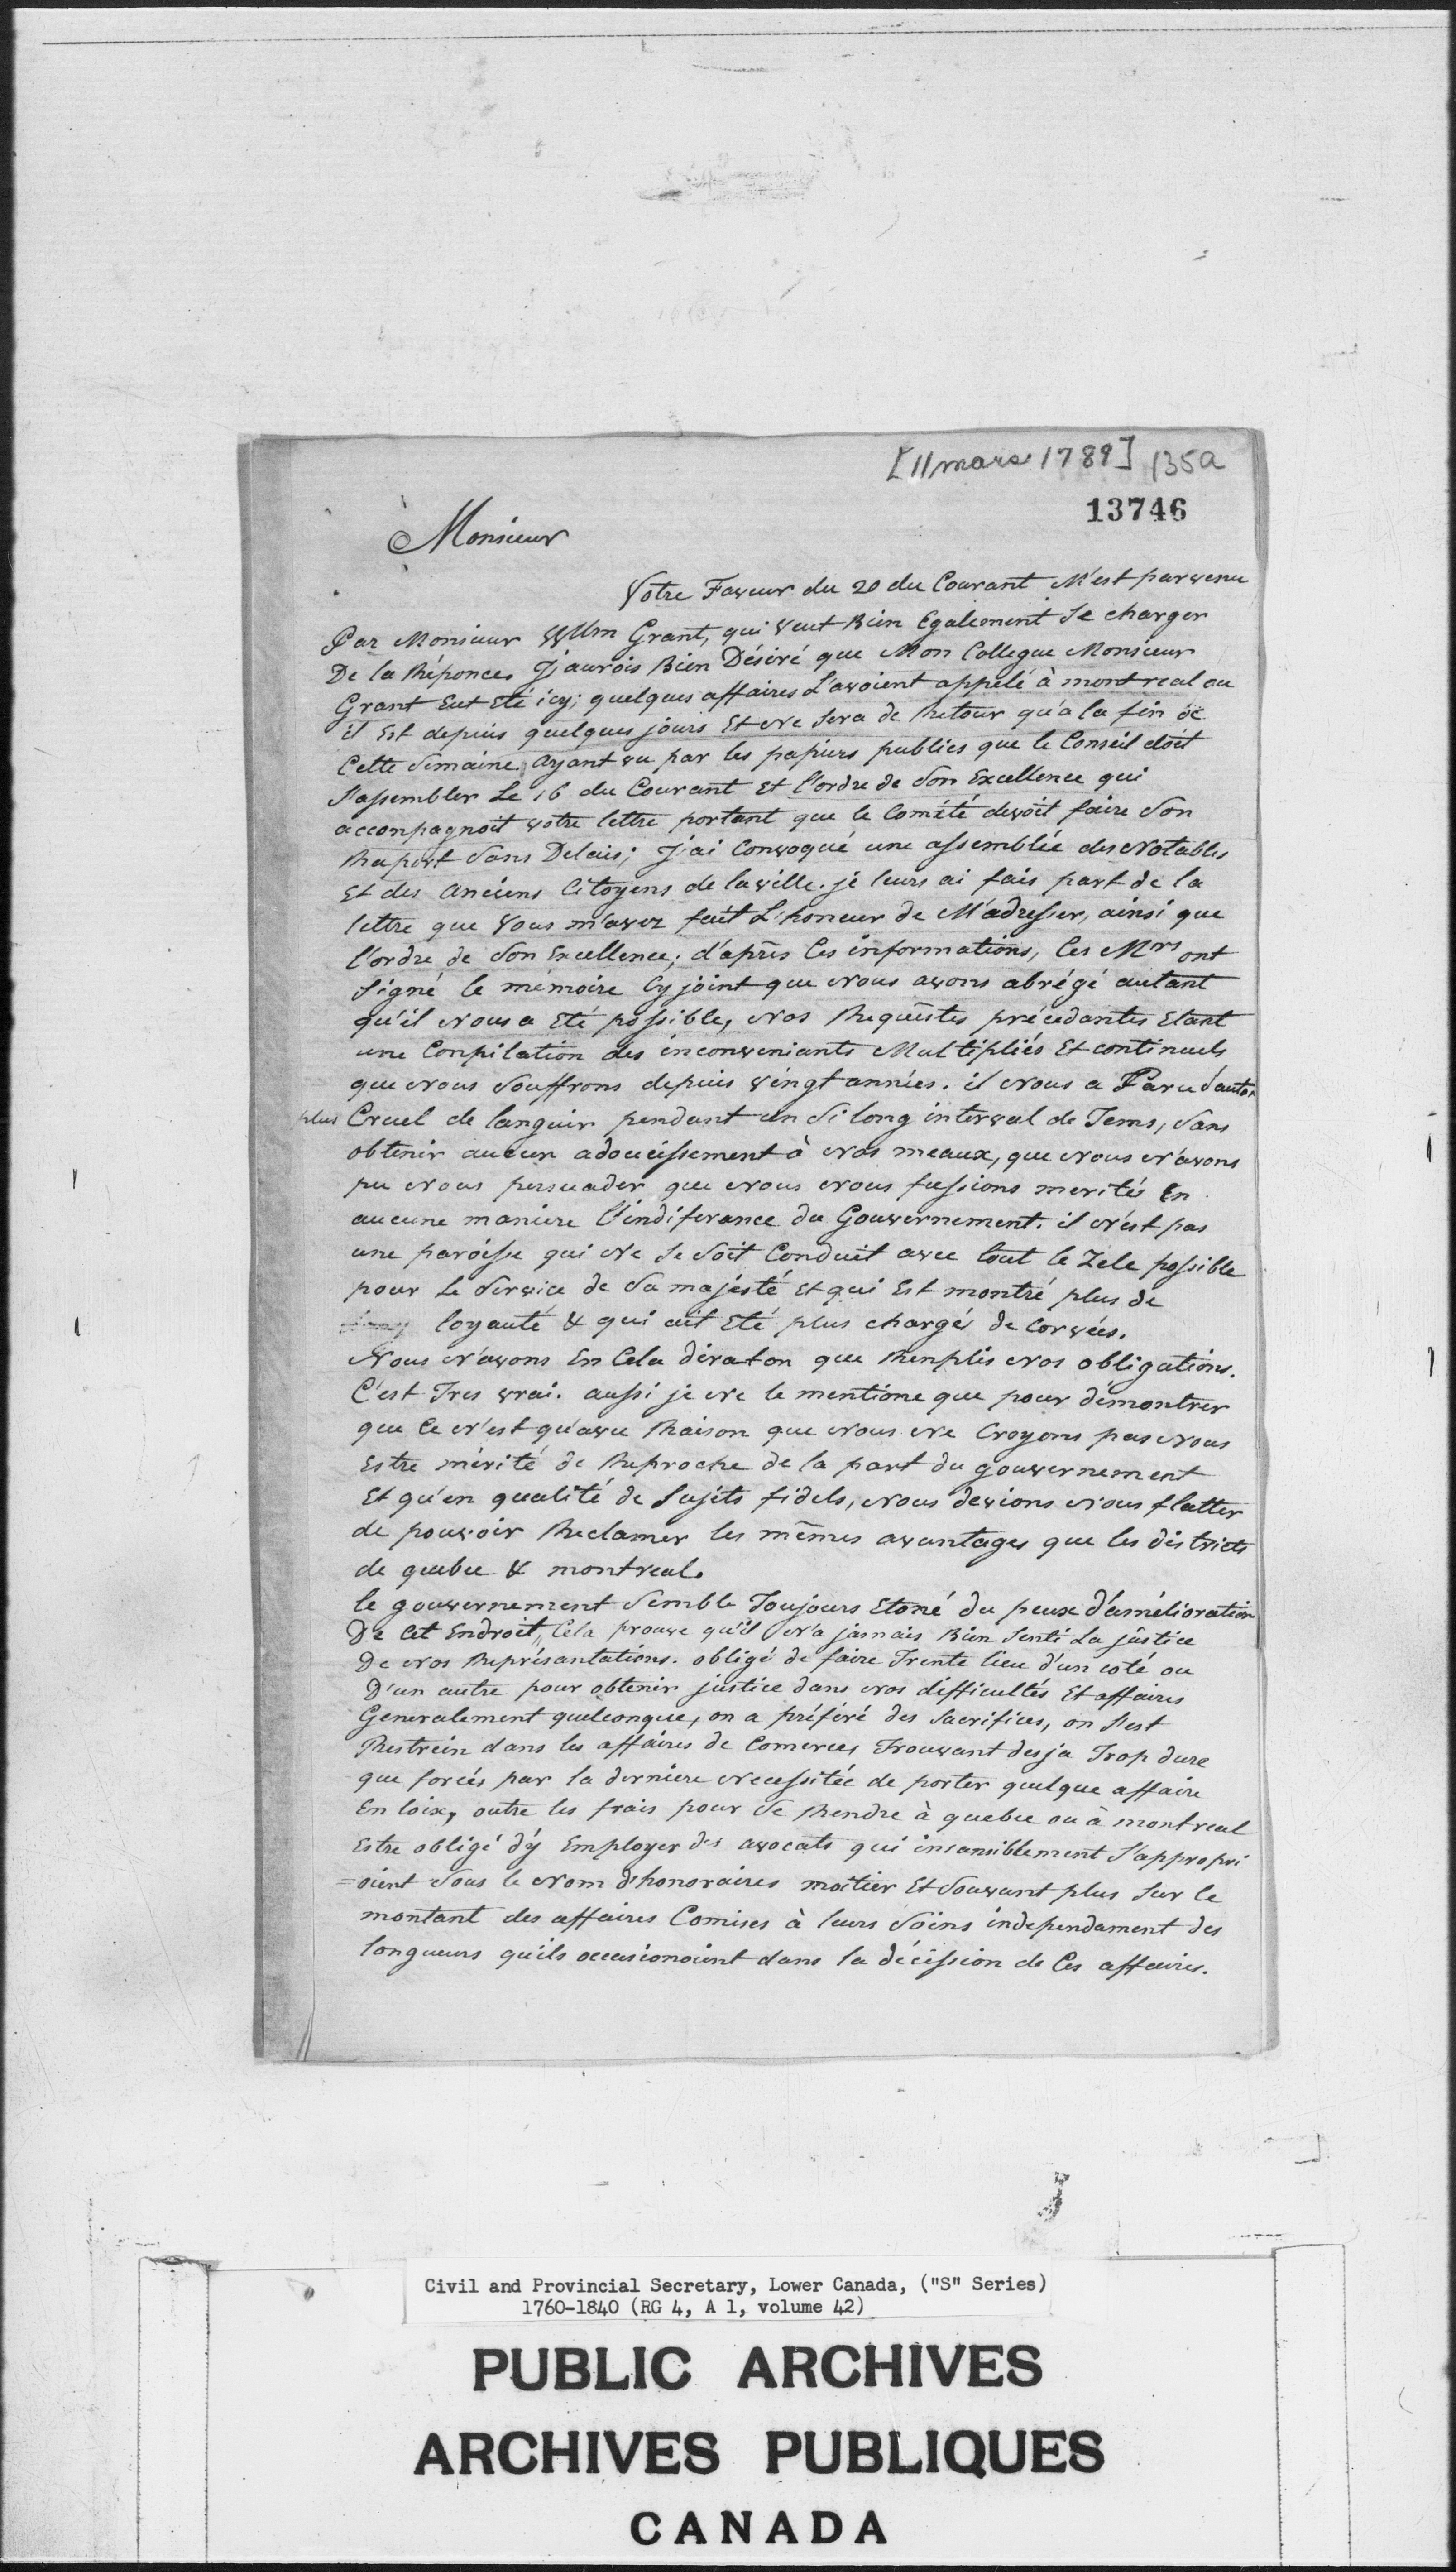 [11 mars 1789] 135a
13746
Monsieur
Votre Faveur du 20 du Courant M'est parvenu
Par Monsieur Wllm Grant, qui veut Bien Egalement Se charger
De la Réponce, J'aurois Bien Désiré que Mon Collegue Monsieur
Grant Eut Eté icy; quelques affaires L'avoient appelé à montreal ou
il Est depuis quelques jours Et Ne Sera de Retour qu'a la fin de
Cette Semaine. ayant vu par les papiers publics que le Conseil doit
S'assembler Le 16 du Courant Et l'ordre de Son Excellence qui
acconpagnoit votre lettre portant que le Comité devoit faire Son
Raport Sans Delais; J'ai Convoqué une assemblée des Notables
Et des anciens Citoyens de la ville. je leurs ai fais part de la
lettre que Vous m'avez fait L'honeur de M'adresser, ainsi que
l'ordre de Son Excellence; d'après Ces informations, Ces Mrs ont
Signé le mémoire Cy joint que Nous avons abrégé autant
qu'il Nous a Eté possible, Nos Requêtes précedantes Etant
une Conpilation des inconveniants Multipliés Et continuels
que Nous Souffrons depuis vingt années. il Nous a Paru d'autant
plus Cruel de languir pendant un Si long interval de Tems, Sans
obtenir aucun adoucissement à Nos meaux, que Nous N'avons
pu Nous persuader que Nous Nous fussions merités En
aucune maniere l'indiferance du Gouvernement. il N'est pas
une paroisse qui Ne Se Soit Conduit avec tout le Zele possible
pour Le Service de Sa majesté Et qui Est montré plus de
loyauté & qui ait Eté plus chargés de Corvées.
Nous N'avons En Cela dira ton que Renplis Nos obligations.
C'est Tres vrai. aussi je Ne le mentione que pour démontrer
que Ce N'est qu'avec Raison que Nous Ne Croyons pas Nous
Estre mérité de Reproche de la part du gouvernement
Et qu'en qualité de Sujets fidels, Nous devions Nous flatter
de pouvoir Reclamer les mêmes avantages que les districts
de quebec & montreal.
le gouvernement Semble Toujours Etoné du peux d'amélioration
De Cet Endroit, Cela prouve qu'il N'a jamais Bien Senti La justice
De Nos Représantations. obligé de faire Trente lieu d'un coté ou
D'un autre pour obtenir justice dans Nos difficultés Et affaires
Generalement quelconque, on a préféré des Sacrifices, on S'est
Restrein dans les affaires de Comerces Trouvant desja Trop dure
que forcés par la derniere Necessitée de porter quelque affaire
En loix, outre les frais pour Se Rendre à quebec ou à montreal
Estre obligé d'y Employer des avocats qui insansiblement S'appropri
=oient Sous le Nom d'honoraires moitier Et Souvant plus Sur le
montant des affaires Comises à leurs Soins independament des
longueurs qu'ils occasionoient dans la décission de Ces affaires.
Civil and Provincial Secretary, Lower Canada, ("S" Series)
1760-1840 (RG 4, A 1, volume 42)
PUBLIC ARCHIVES
ARCHIVES PUBLIQUES
CANADA